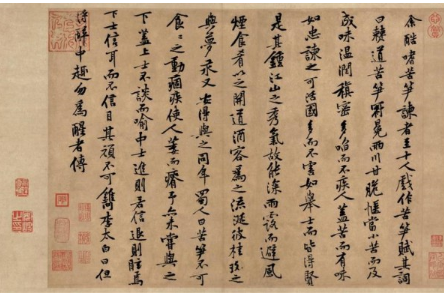 余酷嗜苦笋諫者至十人戲作苦笋賦其詞
曰僰道苦笋冠冕兩川甘脆愜當小苦而反
成味温潤縝密多啗而不疾人蓋苦而有味
如忠諫之可活國多而不害如舉士而皆得賢
是其鍾江山之秀氣故能深雨露而避風
煙食肴以之開道酒客為之流涎彼桂玫之
與夢汞又安得與之同年蜀人曰苦笋不可
食〻之動痼疾使人萎而瘠予亦未嘗與之
下蓋上士不談而喻中士進則若信退則眩焉
下士信耳而不信目其頑不可鐫李太白曰但
得醉中趣勿為醒者傳